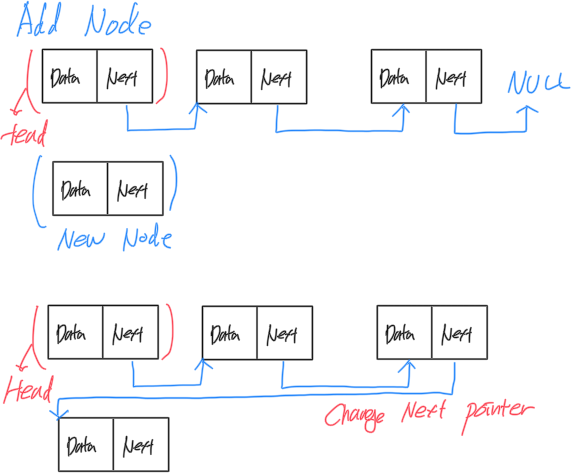 Add Node
Data Next Data Next Data Next NULL
Head
Data Next
New Node
Data Next Data Next Data Next
Head
Change Next pointer
Data Next